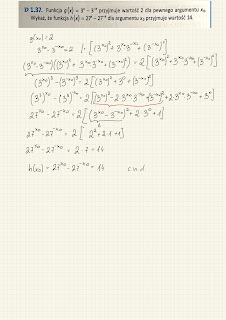 D 1.37. Funkcja g(x) = 3ˣ − 3⁻ˣ przyjmuje wartość 2 dla pewnego argumentu x₀.
Wykaż, że funkcja h(x) = 27ˣ − 27⁻ˣ dla argumentu x₀ przyjmuje wartość 14.
g(x₀) = 2
3ˣ⁰ − 3⁻ˣ⁰ = 2 /· [(3ˣ⁰)² + 3ˣ⁰·3⁻ˣ⁰ + (3⁻ˣ⁰)²]
(3ˣ⁰ − 3⁻ˣ⁰)[(3ˣ⁰)² + 3ˣ⁰·3⁻ˣ⁰ + (3⁻ˣ⁰)²] = 2[(3ˣ⁰)² + 3ˣ⁰·3⁻ˣ⁰ + (3⁻ˣ⁰)²]
(3ˣ⁰)³ − (3⁻ˣ⁰)³ = 2[(3ˣ⁰)² + 3⁰ + (3⁻ˣ⁰)²]
(3³)ˣ⁰ − (3³)⁻ˣ⁰ = 2[(3ˣ⁰)² − 2·3ˣ⁰·3⁻ˣ⁰ + (3⁻ˣ⁰)² + 2·3ˣ⁰·3⁻ˣ⁰ + 3⁰]
27ˣ⁰ − 27⁻ˣ⁰ = 2[(3ˣ⁰ − 3⁻ˣ⁰)² + 2·3⁰ + 1]
27ˣ⁰ − 27⁻ˣ⁰ = 2[2² + 2·1 + 1]
27ˣ⁰ − 27⁻ˣ⁰ = 2·7 = 14
h(x₀) = 27ˣ⁰ − 27⁻ˣ⁰ = 14 c n d